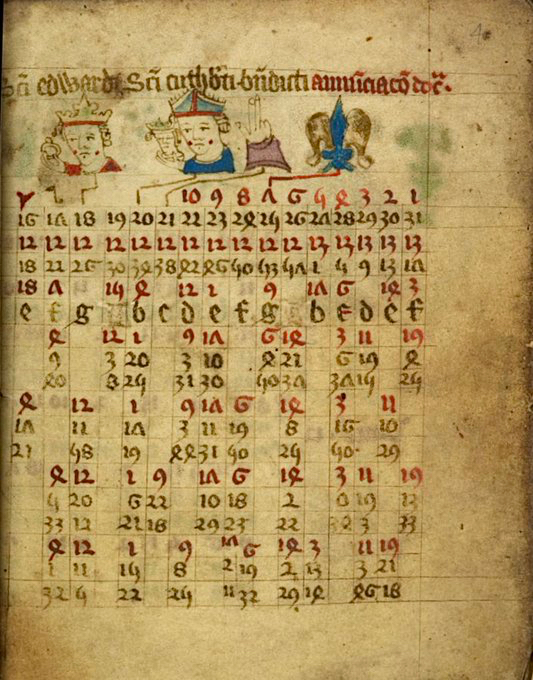 Sci edwardi Sci cuthbti bndicti annuciaco dce
10 9 8 7 6 5 4 3 2 1
16 17 18 19 20 21 22 23 24 25 26 27 28 29 30 31
12 12 12 12 12 12 12 12 12 12 12 13 13 13 13 13
18 22 26 30 34 38 42 46 50 53 57 1 5 9 13 17
18 7 15 4 12 1 9 17 6 14 3
e f g A b c d e f g A b c d e f
4 12 1 9 17 6 14 3 11 19
9 3 20 3 10 4 21 6 19 4
40 8 24 31 30 50 37 37 15 24
4 12 1 9 17 6 14 3 11
17 11 17 3 11 19 8 16 10
21 58 19 44 31 50 24 50 29
4 12 1 9 17 6 14 3 11 19
5 20 6 22 10 18 2 0 19 13
33 12 21 18 29 25 22 3 33
4 12 1 9 17 6 14 3 11 19
1 11 15 8 2 19 2 13 3 21
32 5 22 25 11 32 29 14 46 18